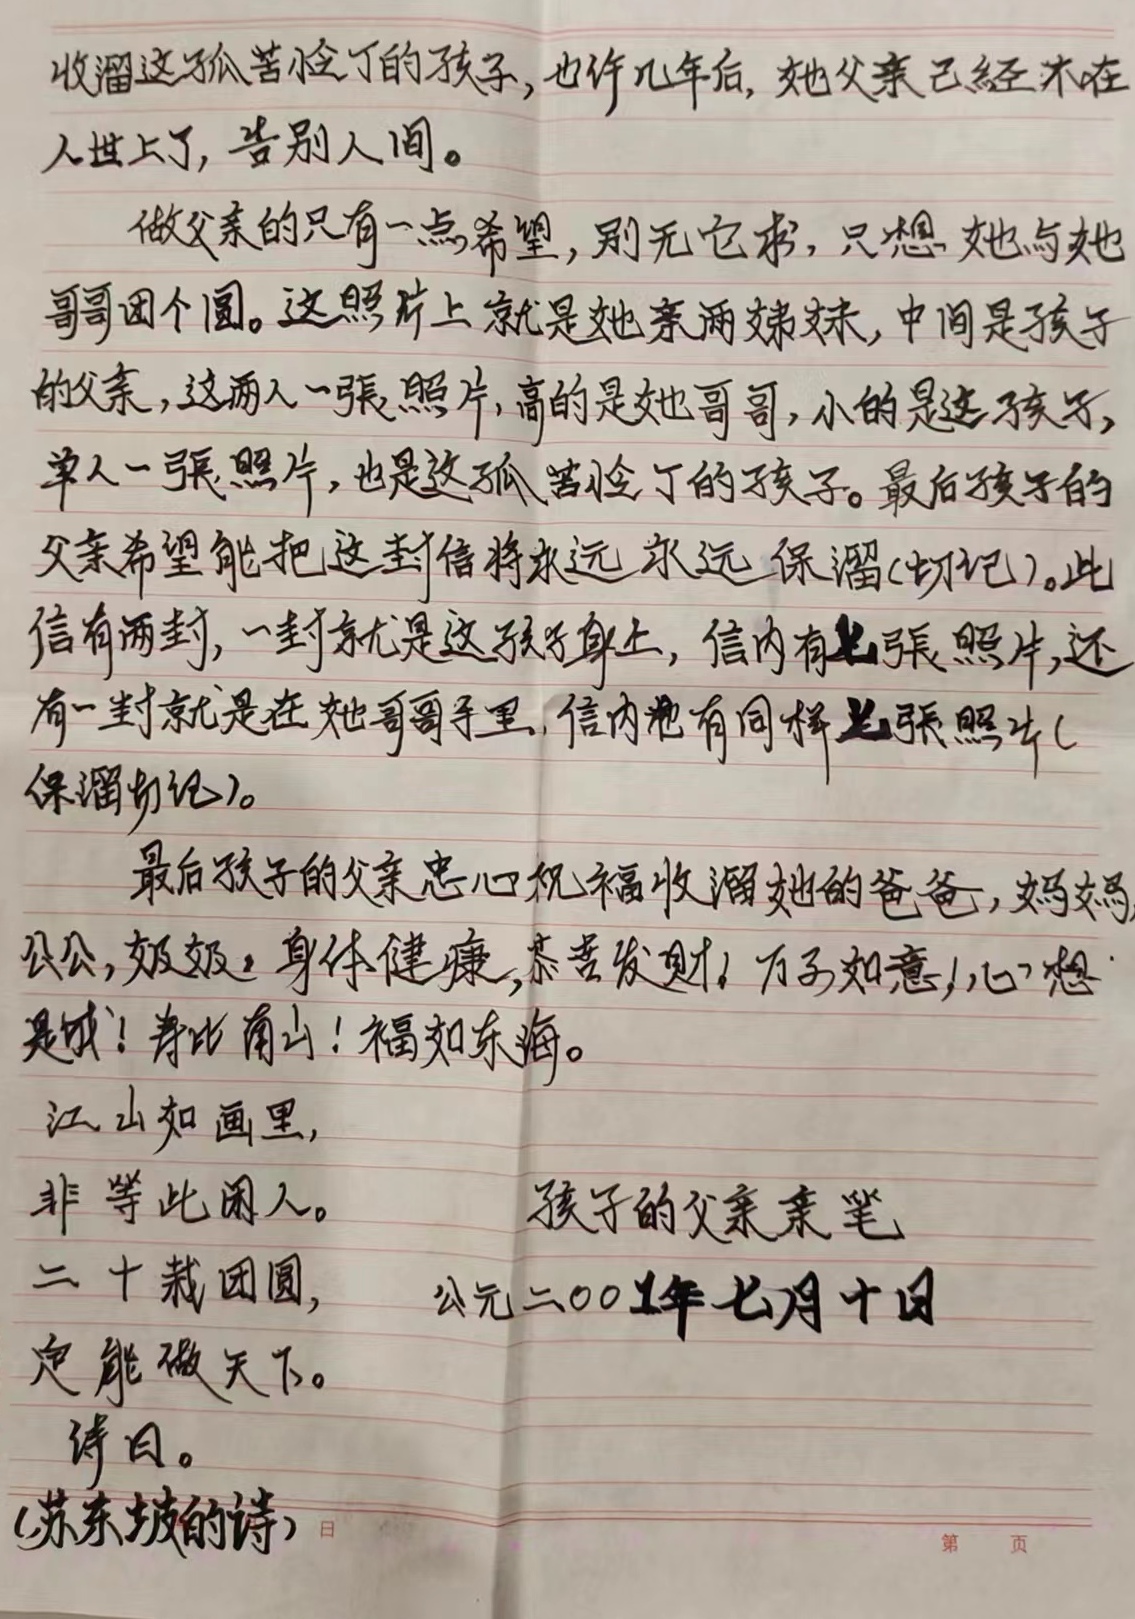 收溜这孤苦怜丁的孩子，也许几年后，她父亲已经不在
人世上了，告别人间。
做父亲的只有一点希望，别无它求，只想她与她
哥哥团个圆。这照片上就是她亲两姊妹，中间是孩子
的父亲，这两人一張照片，高的是她哥哥，小的是这孩子，
单人一張照片，也是这孤苦怜丁的孩子。最后孩子的
父亲希望能把这封信将永远永远保溜（切记）。此
信有两封，一封就是这孩子身上，信内有七張照片，还
有一封就是在她哥哥手里，信内也有同样七張照片（
保溜切记）。
最后孩子的父亲忠心祝福收溜她的爸爸，妈妈，
公公，奶奶，身体健康，恭喜发财！万子如意！心想
是成！寿比南山！福如东海。
江山如画里，
非等此闲人。
孩子的父亲亲笔
二十栽团圆，
公元二〇〇1年七月十日
定能做天下。
诗曰。
（苏东坡的诗）
日
第 页